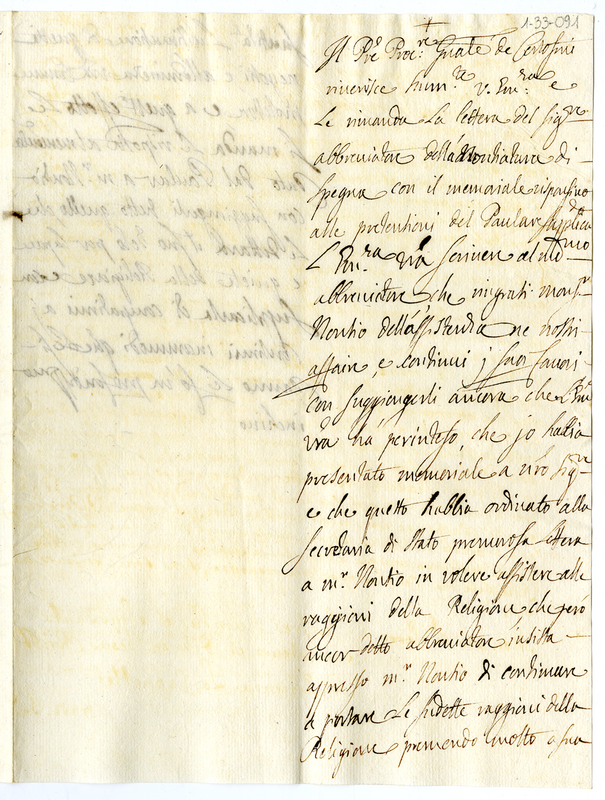 1-33-091
+
Il Pre Proc.re Gnale de Certosini
riverisce hum.te V. Em.ra e
Le rimanda La lettera del Sig.re
abbreviatore della Nontiatura di
Spagna con il memoriale risponsivo
alle pretentioni del Paulare supplica
L'Em.ra Vra scrivere al md.mo
abbreviatore che ringratij mons.r
Nontio dell'assistentia ne nostri
affari, e continui j suoi favori
con suggiongerli ancora che l'Em
Vra ha perinteso, che jo habbia
presentato memoriale a nro Sig.re
e che questo habbia ordinato alla
secretaria di stato premurosa lettera
a m.r Nontio in volere assistere alle
raggioni della Religione che però
ancor detto abbreviatore insista
appresso m.r Nontio di continuare
a portare Le sudette raggioni della
Religione premendo molto a sua